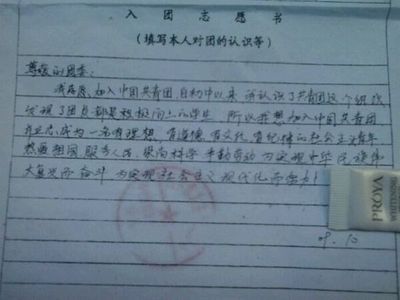 入团志愿书
（填写本人对团的认识等）
尊敬的团委：
我志愿加入中国共青团，自初中以来，我认识了共青团这个组织
发现了团员都是积极向上的学生，所以我想加入中国共青团
成为一名有理想、有道德、有文化、有纪律的社会主义青年
热爱祖国，服务人民，崇尚科学，辛勤劳动，为实现中华民族伟
大复兴而奋斗，为实现社会主义现代化而努力！
PROYA